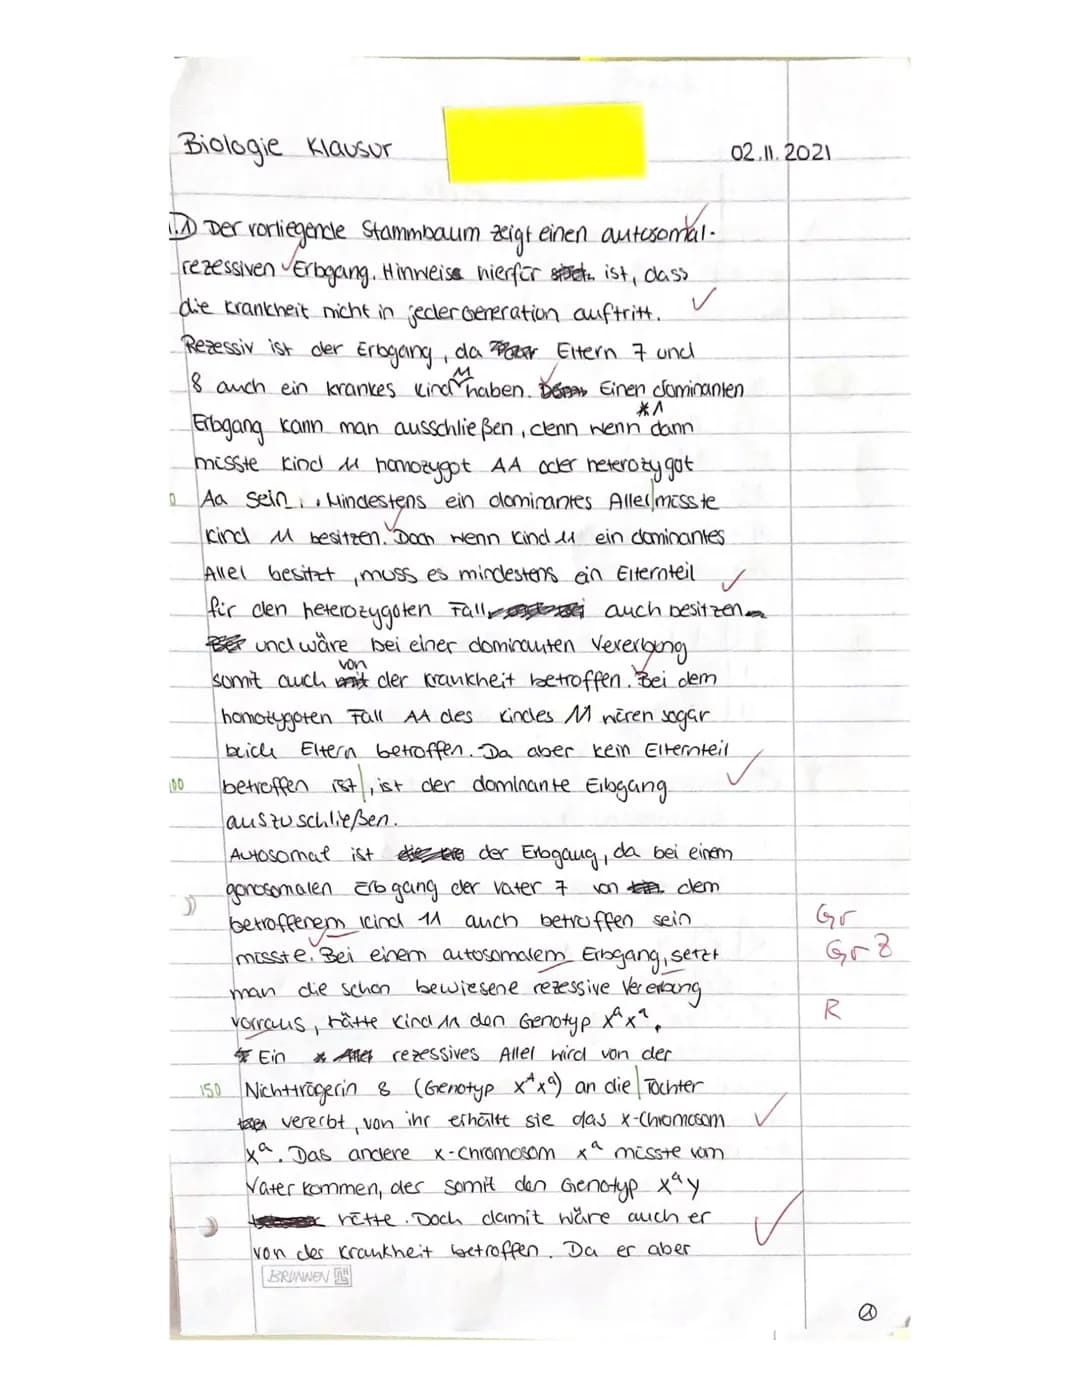 Biologie Klausur 02.11.2021
1.1) Der vorliegende Stammbaum zeigt einen autosomal-
rezessiven Erbgang. Hinweise hierfür ist, dass
die Krankheit nicht in jeder Generation auftritt.
Rezessiv ist der Erbgang, da Eltern 7 und
8 auch ein krankes Kind 11 haben. Einen dominanten
*1
Erbgang kann man ausschließen, denn wenn dann
müsste Kind 11 homozygot AA oder heterozygot
Aa sein. Mindestens ein dominantes Allel müsste
Kind 11 besitzen. Doch wenn Kind 11 ein dominantes
Allel besitzt, muss es mindestens ein Elternteil
für den heterozygoten Fall auch besitzen
und wäre bei einer dominanten Vererbung
somit auch von der Krankheit betroffen. Bei dem
homozygoten Fall AA des Kindes 11 wären sogar
beide Eltern betroffen. Da aber kein Elternteil
100 betroffen ist, ist der dominante Erbgang
auszuschließen.
Autosomal ist der Erbgang, da bei einem
gonosomalen Erbgang der Vater 7 von dem
betroffenem Kind 11 auch betroffen sein Gr
müsste. Bei einem autosomalem Erbgang, setzt Gr Z
man die schon bewiesene rezessive Vererbung
vorraus, hätte Kind 11 den Genotyp XᵃXᵃ. R
Ein rezessives Allel wird von der
150 Nichtträgerin 8 (Genotyp XᴬXᵃ) an die Tochter
vererbt, von ihr erhält sie das X-Chromosom
Xᵃ. Das andere X-Chromosom Xᵃ müsste vom
Vater kommen, der somit den Genotyp XᵃY
hätte. Doch damit wäre auch er
von der Krankheit betroffen. Da er aber
BRUNNEN